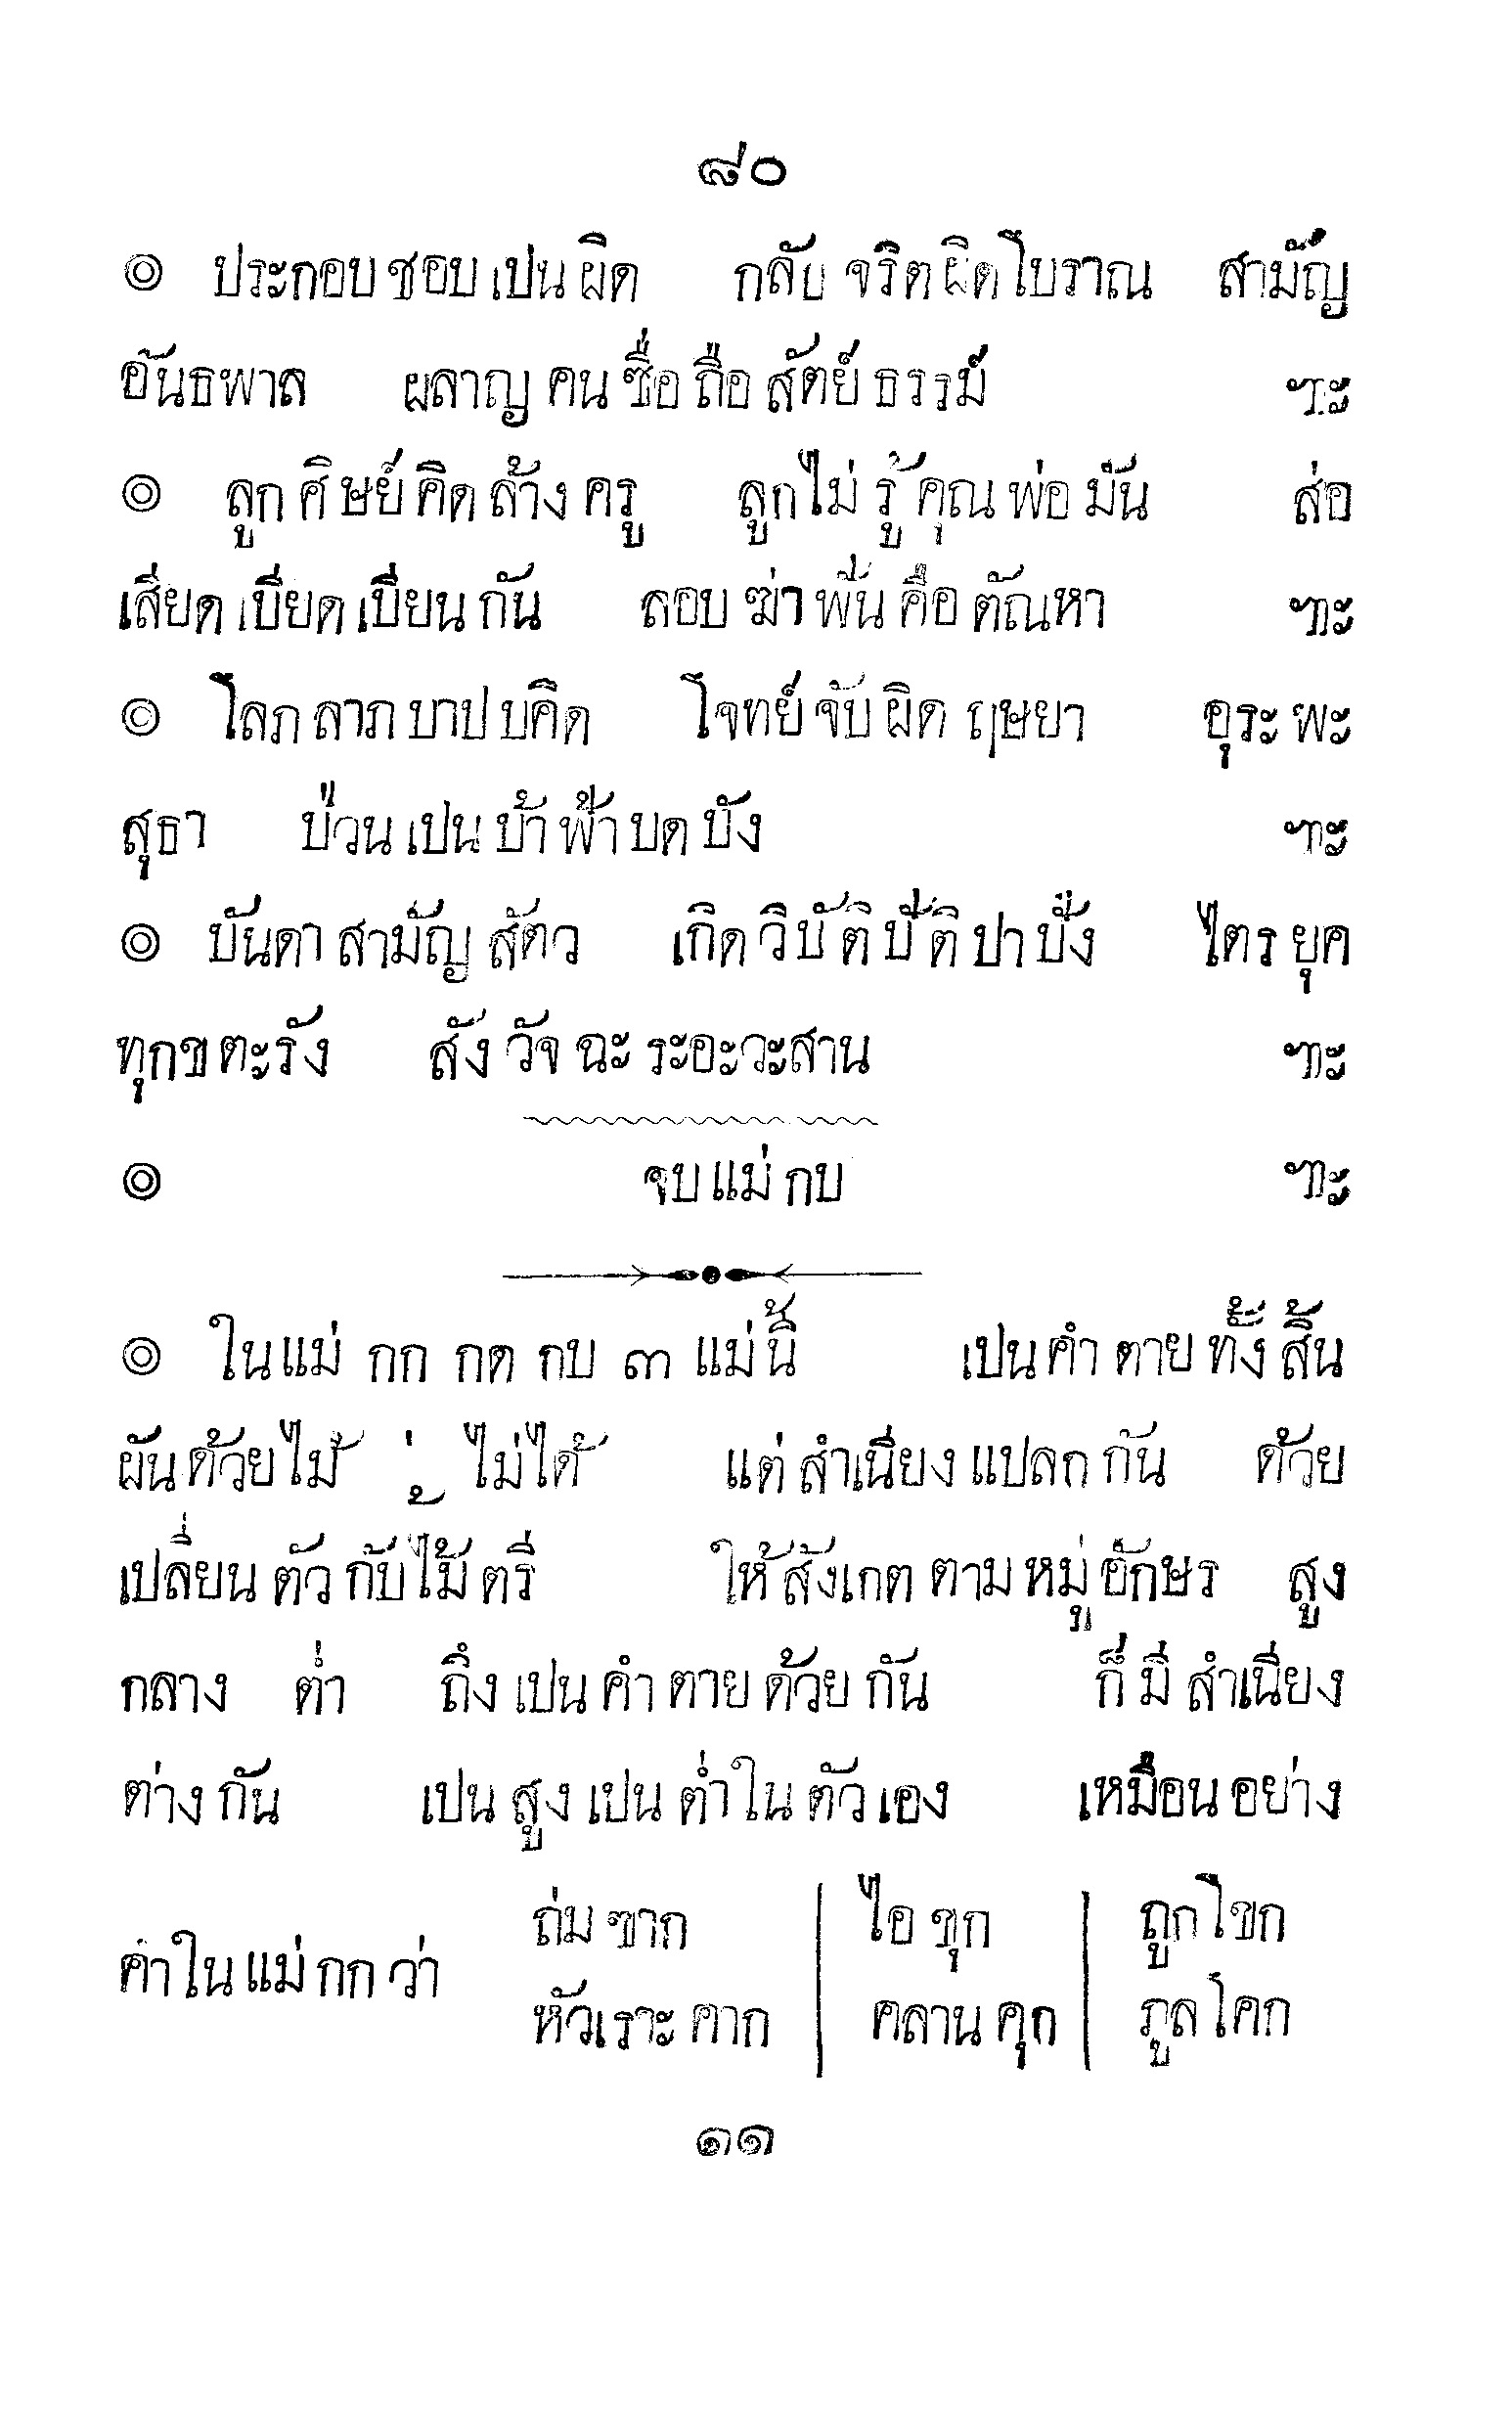 ๘๐
๏ ประกอบชอบเปนผิด กลับจริตผิดโบราณ สามัญ
อันธพาล ผลาญคนซื่อถือสัตย์ธรรม์ ฯะ
๏ ลูกศิษย์คิดล้างครู ลูกไม่รู้คุณพ่อมัน ส่อ
เสียดเบียดเบียนกัน ลอบฆ่าฟันคือตัณหา ฯะ
๏ โลภลาภบาปบคิด โจทย์จับผิดฤษยา อุระพะ
สุธา ป่วนเปนบ้าฟ้าบดบัง ฯะ
๏ บันดาสามัญสัตว เกิดวิบัติปัติปาปัง ไตรยุค
ทุกขตะรัง สังวัจฉะระอะวะสาน ฯะ
๏ จบแม่กบ ฯะ
๏ ในแม่ กก กด กบ ๓ แม่นี้ เปนคำตายทั้งสิ้น
ผันด้วยไม้ ่ ้ ไม่ได้ แต่สำเนียงแปลกกัน ด้วย
เปลี่ยนตัวกับไม้ตรี ให้สังเกตตามหมู่อักษร สูง
กลาง ต่ำ ถึงเปนคำตายด้วยกัน ก็มีสำเนียง
ต่างกัน เปนสูงเปนต่ำในตัวเอง เหมือนอย่าง
คำในแม่กกว่า ถ่มขาก ไอขุก ถูกโขก
หัวเราะคาก คลานคุก ภูลโคก
๑๑